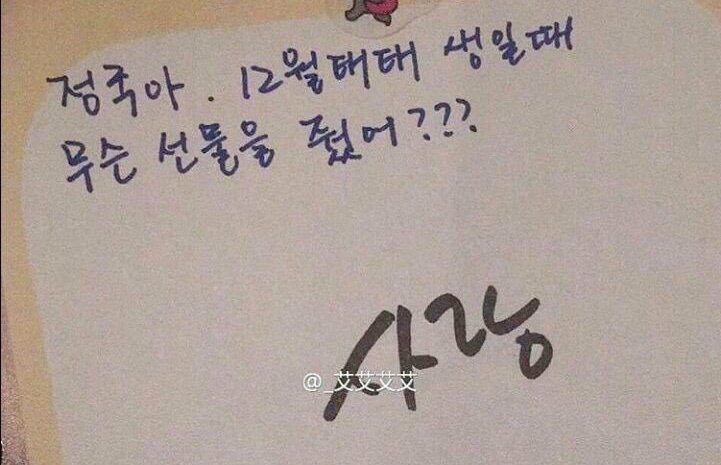 정국아. 12월태태 생일때
무슨 선물을 줬어???
사랑
@_艾艾艾艾